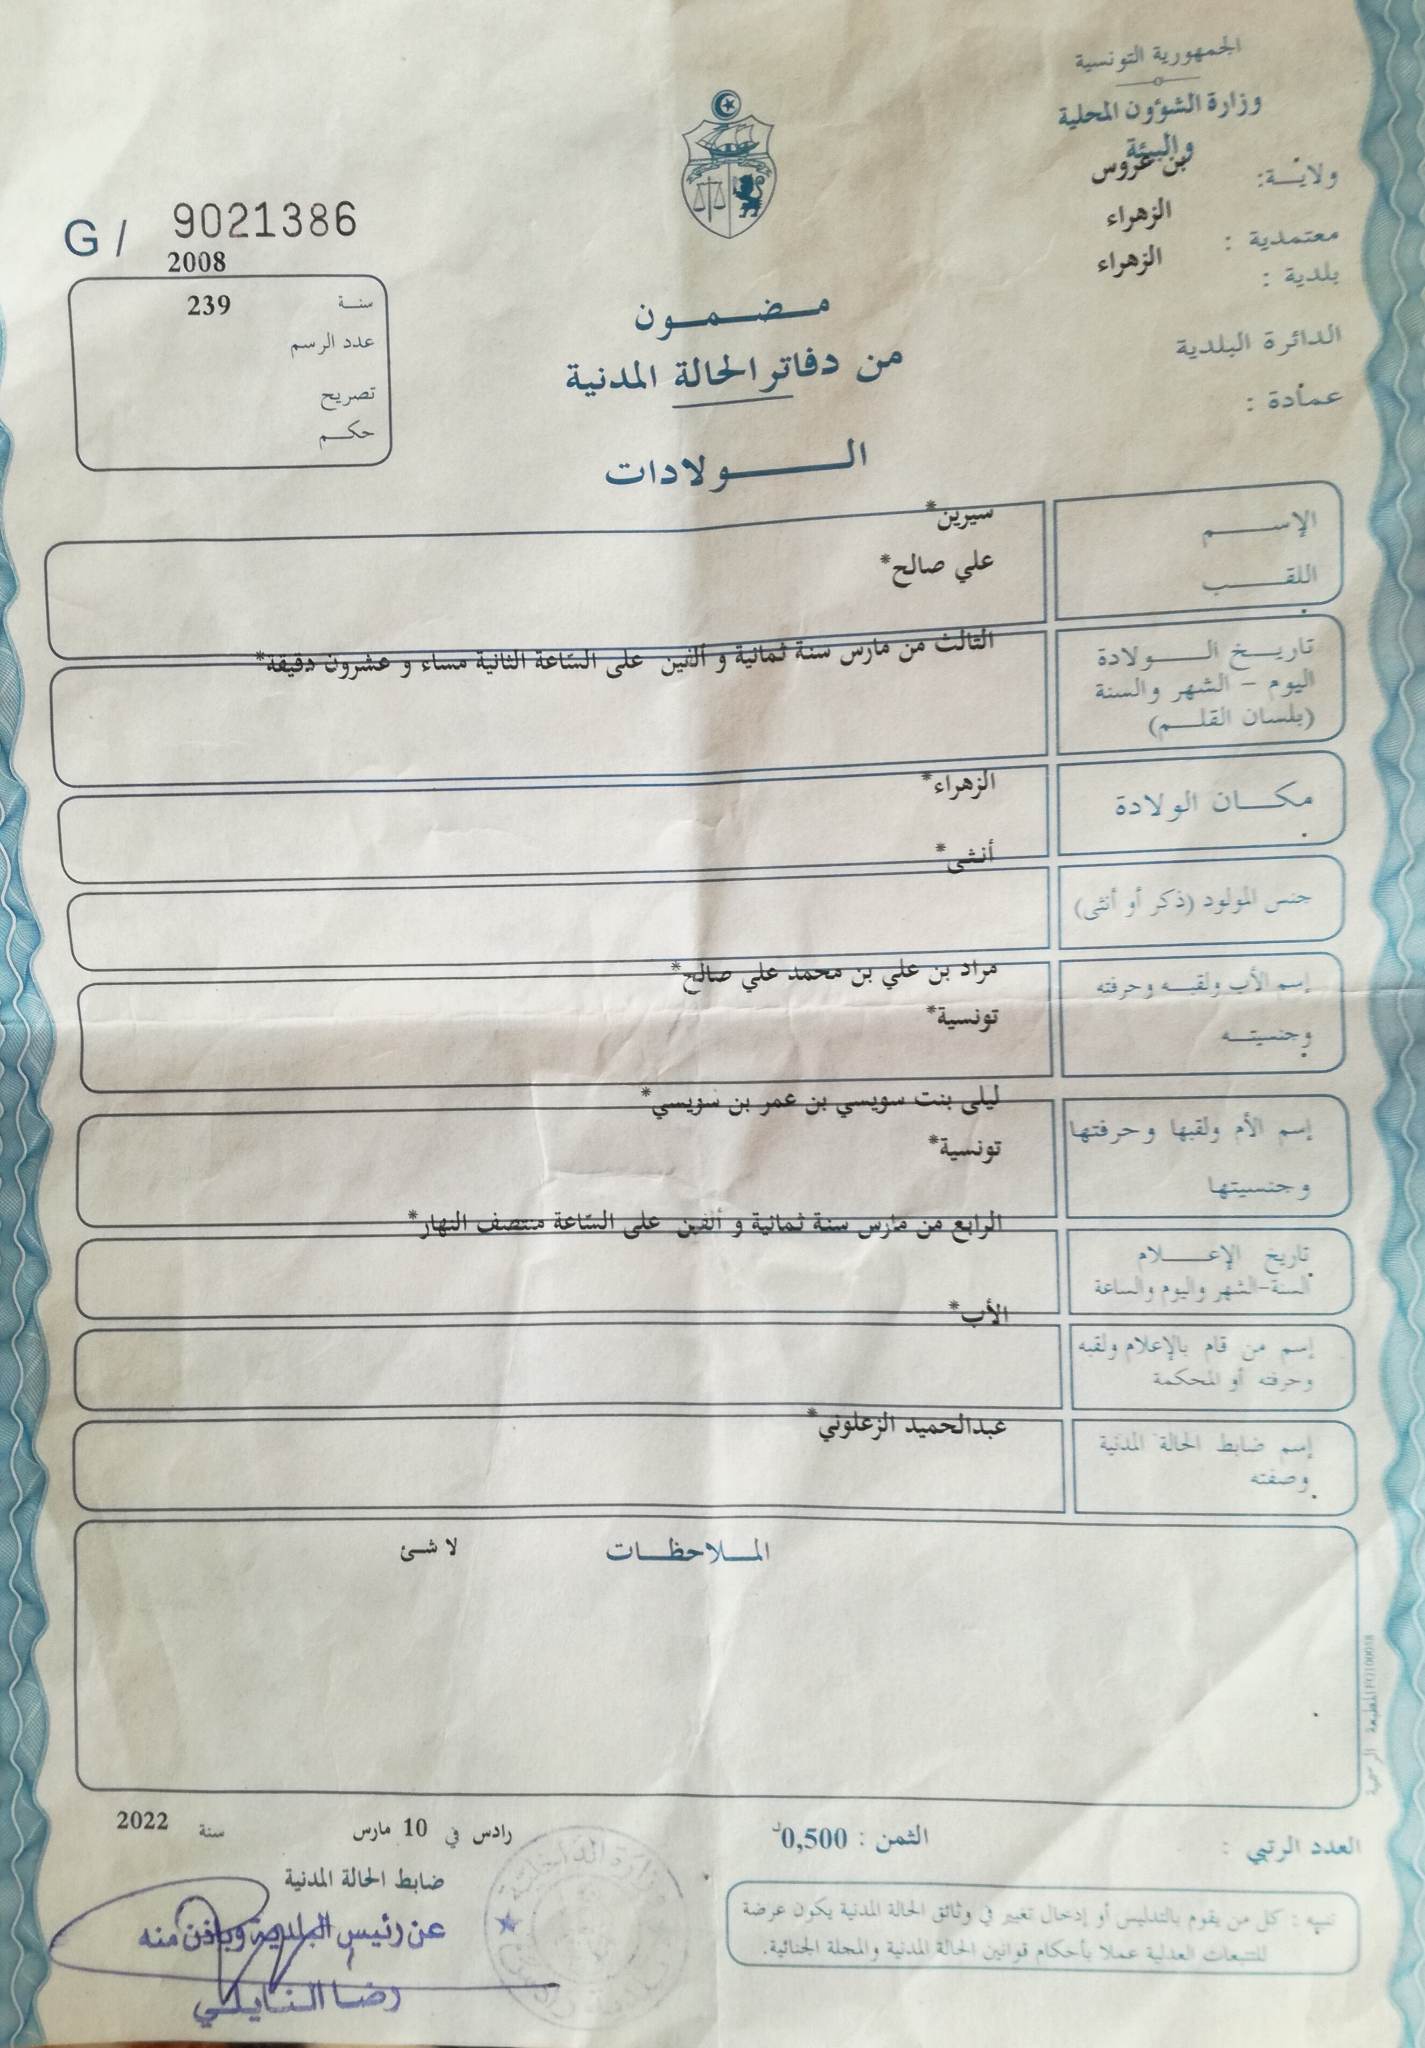 الجمهورية التونسية
وزارة الشؤون المحلية
والبيئة
ولايـة: بن عروس
معتمدية : الزهراء
بلدية : الزهراء
الدائرة البلدية
عمادة :
G / 9021386
2008
سنـة 239
عدد الرسم
تصريح
حكـم
مـضـمـون
من دفاتر الحالة المدنية
الـولادات
الإسـم سيرين*
اللقـب علي صالح*
تاريـخ الـولادة الثالث من مارس سنة ثمانية و ألفين على السّاعة الثانية مساء و عشرون دقيقة*
اليوم - الشهر والسنة
(بلسان القلـم)
مكـان الولادة الزهراء*
جنس المولود (ذكر أو أنثى) أنثى*
إسم الأب ولقبـه وحرفته مراد بن علي بن محمد علي صالح*
وجنسيتـه تونسية*
إسم الأم ولقبها وحرفتها ليلى بنت سويسي بن عمر بن سويسي*
وجنسيتها تونسية*
تاريخ الإعـلام الرابع من مارس سنة ثمانية و ألفين على السّاعة منتصف النهار*
السنة-الشهر واليوم والساعة
إسم من قام بالإعلام ولقبه الأب*
وحرفته أو المحكمة
إسم ضابط الحالة المدنية عبدالحميد الزعلوني*
وصفته
المـلاحظـات لا شئ
المطبعة الرسمية
العدد الرتبي :
الثمن : 0,500د
رادس في 10 مارس سنة 2022
ضابط الحالة المدنية
عن رئيس البلدية وباذن منه
رضا النايلي
وزارة الداخلية
تنبيه : كل من يقوم بالتدليس أو إدخال تغيير في وثائق الحالة المدنية يكون عرضة
للتتبعات العدلية عملا بأحكام قوانين الحالة المدنية والمجلة الجنائية.